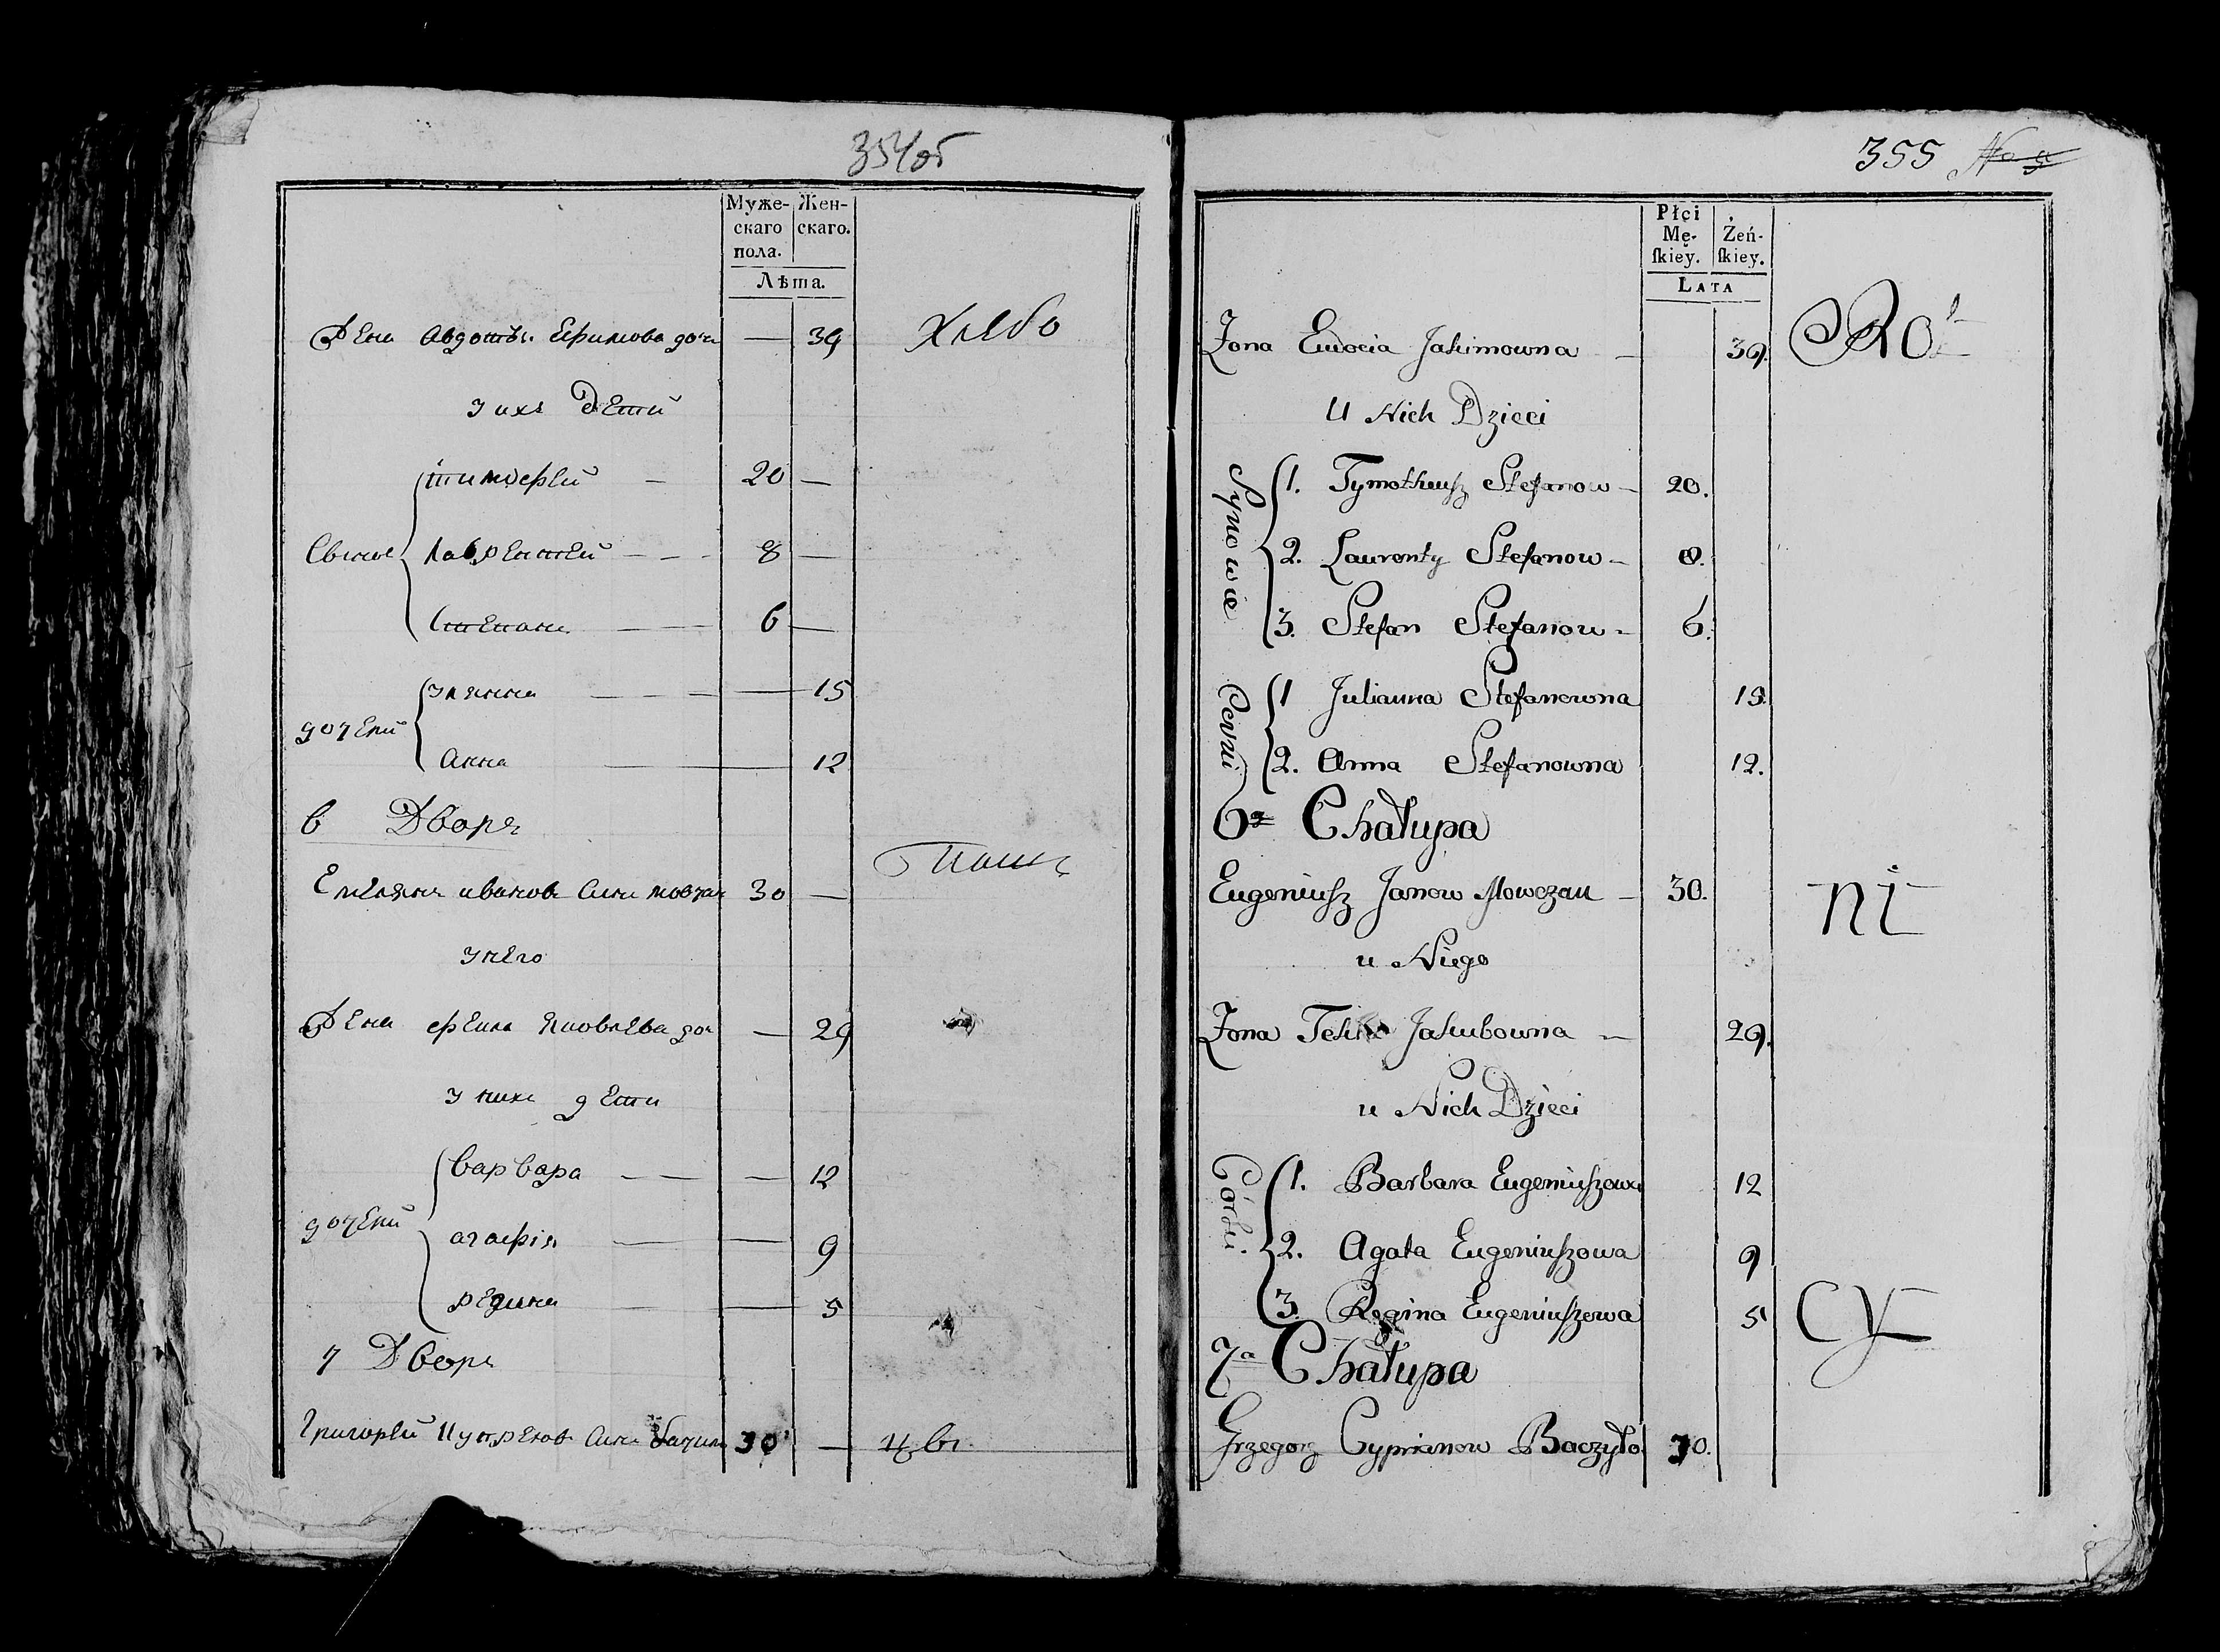 354об
Муже-
скаго
пола.
Жен-
скаго.
Лѣта.
Жена Авдотья Ефимова дочь — 39 Хлебо
У ихъ Дети
Сыны
тимофей — 20 —
Лаврентей — — - 8 —
Степанъ — — 6 —
дочери
Улянна — — — 15
Анна — 12
6 Дворъ
Паш
Емелянъ иванов Синъ мовчан 30 —
У него
Жена Яковлева доч — 29
У нихъ дети
дочери
Варвара — — — 12
агафія — — 9
регина — — 5
7 Дворъ
Григорей Куприянов Синъ бачило 30 —
355 No 9
Płci
Mę-
ſkiey.
Żeń-
ſkiey.
LATA
Zona Eudocia Jakimowna — 39.
U Nich Dzieci
Synowie
1. Tymotheuſz Stefanow — 20.
2. Laurenty Stefanow — 8.
3. Stefan Stefanow - 6.
Corki
1 Julianna Stefanowna 15.
2. Anna Stefanowna 12.
6a Chałupa
Eugeniuſz Janow Mowczan — 30. ni
u Niego
Zona Tekla Jakubowna — 29.
u Nich Dzieci
Córki.
1. Barbara Eugeniuſzowa 12
2. Agata Eugeniuſzowa 9
3. Regina Eugeniuſzowa 5
7a Chałupa
Grzegorz Cyprianow Baczyło 30.